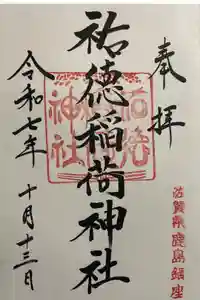 奉拝
佐賀県鹿島鎮座
祐徳稲荷神社
祐徳稲荷神社
令和七年
十月十三日